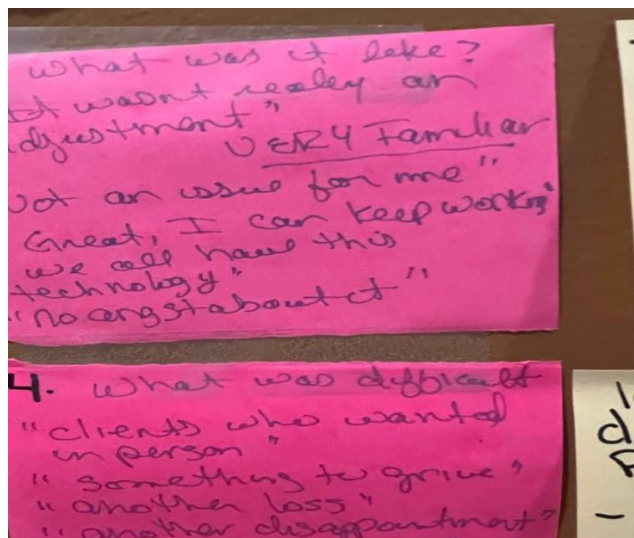 What was it like?
It wasn't really an
adjustment"
VERY Familiar
Not an issue for me"
Great, I can keep working"
we all have this
technology"
"no angst about it"
4. What was difficult
"clients who wanted
in person"
"something to grieve"
"another loss"
"another disappointment"